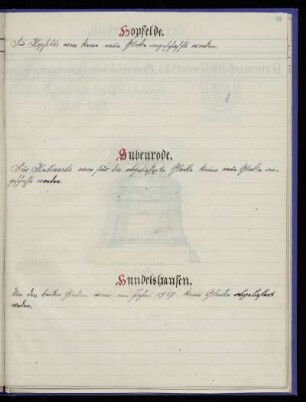 Hopfelde.
Für Hopfelde war keine neue Glocke angeschafft worden.
Hubenrode.
Für Hubenrode war für die abgelieferte Glocke keine neue Glocke an-
geschafft worden.
Hundelshausen.
Von den beiden Glocken war im Jahre 1917 keine Glocke abgeliefert
worden.